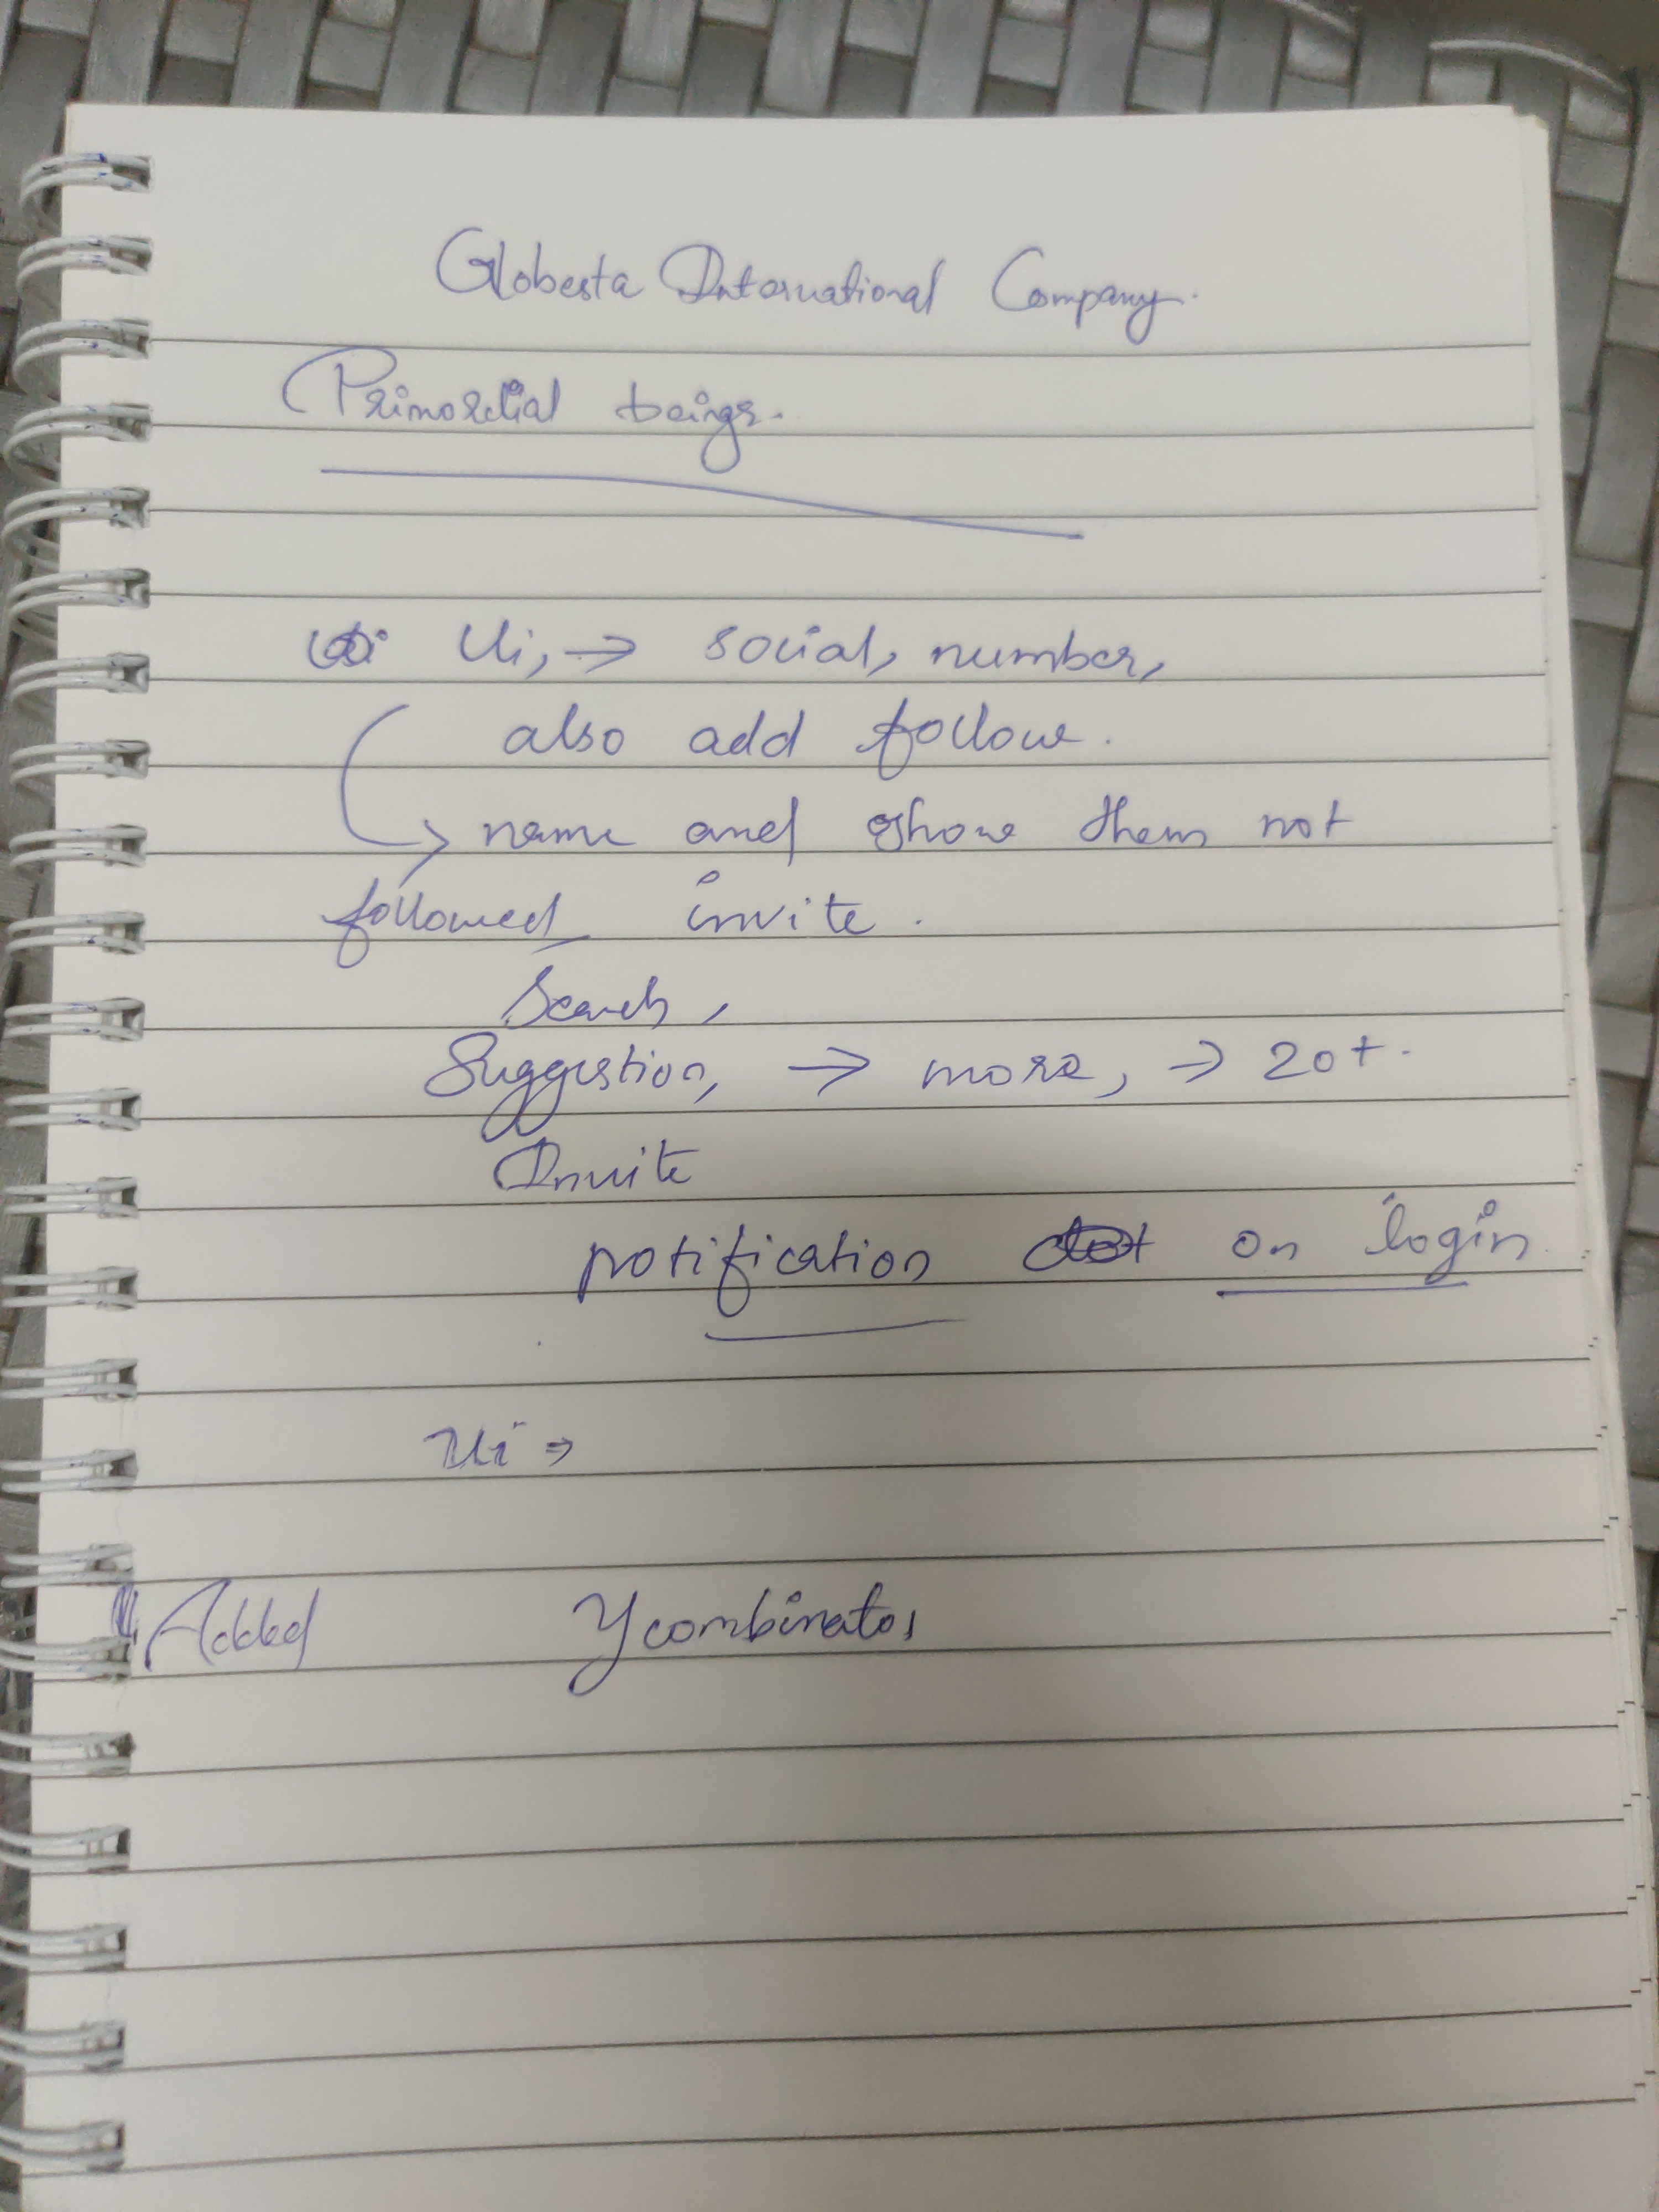 Globesta International Company.
Primordial beings.
Ui, → social, number,
also add follow.
→ name and show them not
followed invite.
Search,
Suggestion, → more, → 20+.
Invite
notification on login
Ui ⇒
Added Ycombinator